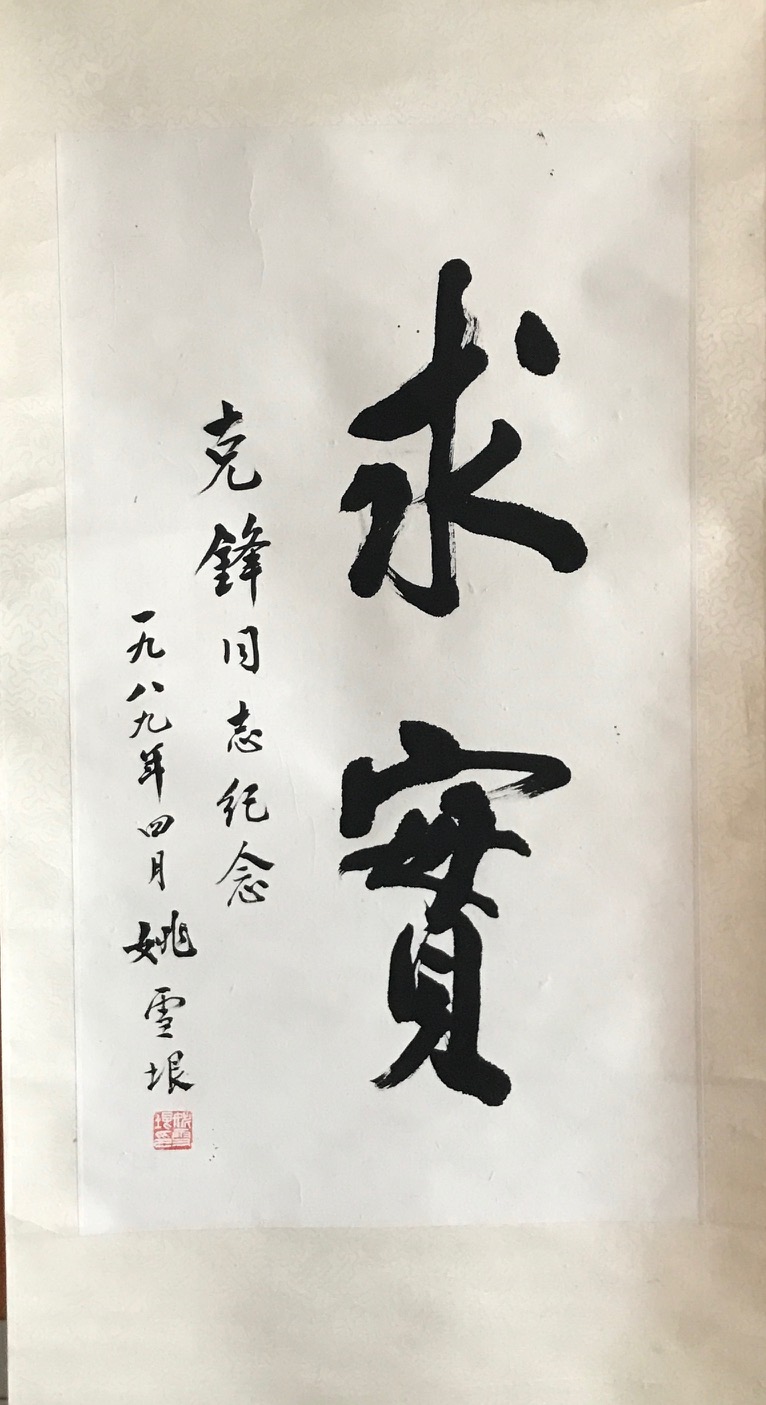 求實
克鋒同志纪念
一九八九年四月 姚雪垠